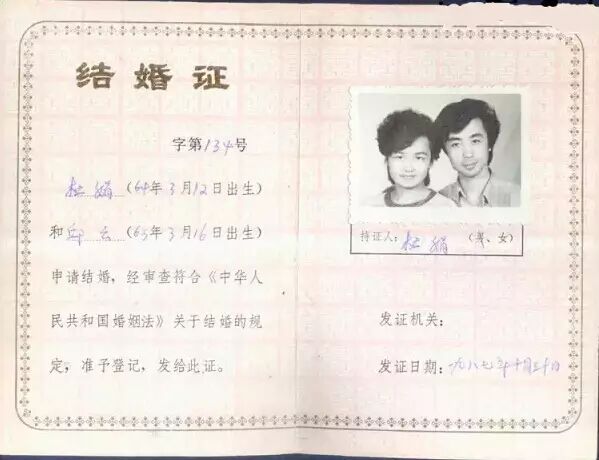 结婚证
字第134号
杜娟(64年3月12日出生)
和邱云(65年3月16日出生)
申请结婚，经审查符合《中华人
民共和国婚姻法》关于结婚的规
定，准予登记，发给此证。
持证人：杜娟 (男、女)
发证机关：
发证日期：一九八七年十月三十日